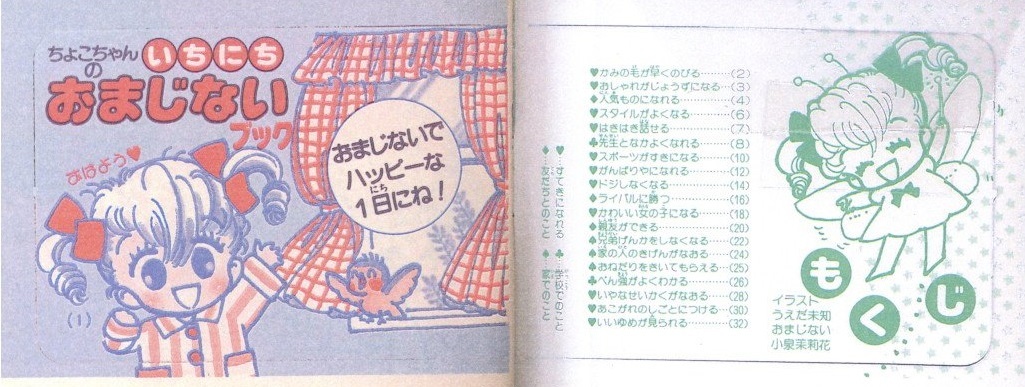 ちょこちゃん
の
いちにち
おまじない
ブック
おはよう♥
おまじないで
ハッピーな
1日にね!
にち
(1)
♥かみの毛が早くのびる………(2)
♥おしゃれがじょうずになる……(3)
♦人気ものになれる………(4)
♥スタイルがよくなる………(6)
♥はきはき話せる………(7)
♣先生となかよくなれる………(8)
♥スポーツがすきになる………(10)
♥がんばりやになれる………(12)
♥ドジしなくなる………(14)
♦ライバルに勝つ………(16)
♥かわいい女の子になる………(18)
♦親友ができる………(20)
♠兄弟げんかをしなくなる………(22)
♠家の人のきげんがなおる………(24)
♠おねだりをきいてもらえる……(25)
♣べん強がよくわかる………(26)
♥いやなせいかくがなおる………(28)
♥あこがれのしごとにつける……(30)
♥いいゆめが見られる………(32)
♥…すてきになれる ♣…学校でのこと
♦…友だちとのこと ♠…家でのこと
もくじ
イラスト
うえだ未知
おまじない
小泉茉莉花